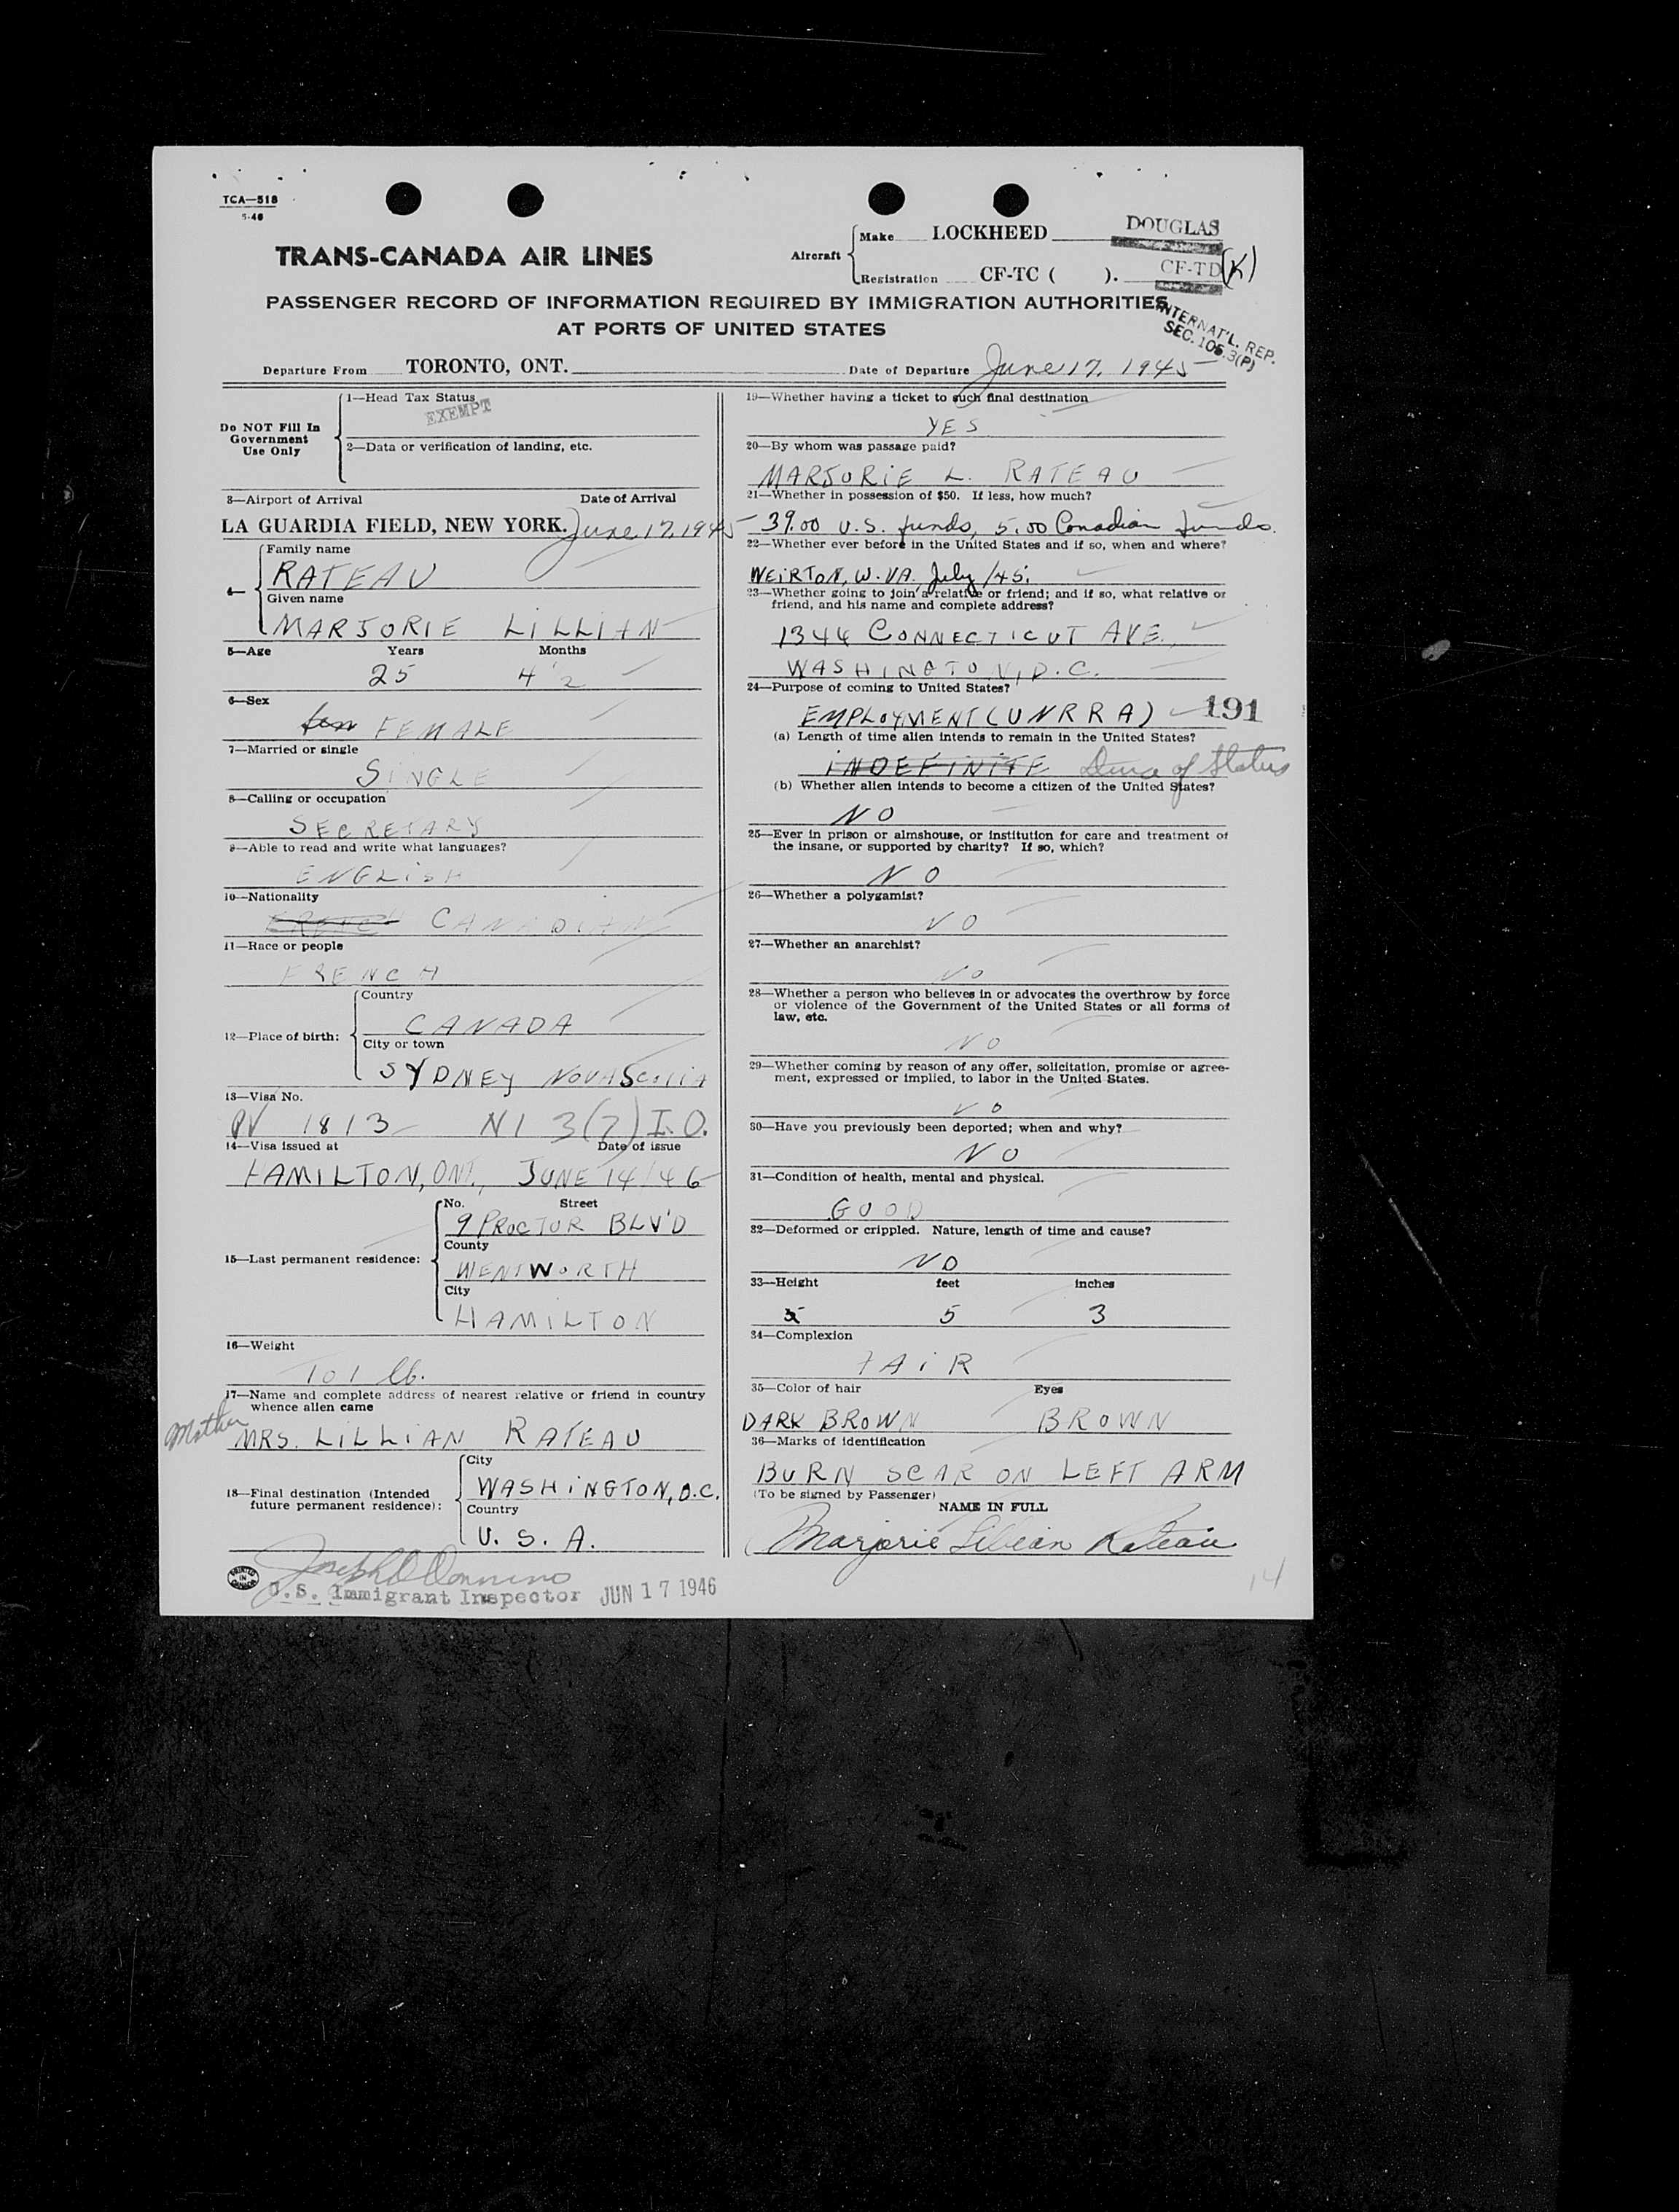 TCA—518
5-46
TRANS-CANADA AIR LINES
Aircraft
Make LOCKHEED DOUGLAS
Registration CF-TC ( ). CF-TD (K)
PASSENGER RECORD OF INFORMATION REQUIRED BY IMMIGRATION AUTHORITIES
AT PORTS OF UNITED STATES
INTERNAT'L. REP.
SEC. 105.3(P)
Departure From TORONTO, ONT. Date of Departure June 17, 1945
Do NOT Fill In
Government
Use Only
1—Head Tax Status
EXEMPT
2—Data or verification of landing, etc.
3—Airport of Arrival Date of Arrival
LA GUARDIA FIELD, NEW YORK. June 17, 1945
4—
Family name
RATEAU
Given name
MARJORIE LILLIAN
5—Age Years Months
25 4 1/2
6—Sex
fem FEMALE
7—Married or single
SINGLE
8—Calling or occupation
SECRETARY
9—Able to read and write what languages?
ENGLISH
10—Nationality
CANADIAN
11—Race or people
FRENCH
12—Place of birth:
Country
CANADA
City or town
SYDNEY NOVA SCOTIA
13—Visa No.
PV 1813 NI 3(7) I.O.
14—Visa issued at Date of issue
HAMILTON, ONT., JUNE 14/46
15—Last permanent residence:
No. Street
9 PROCTOR BLV'D
County
WENTWORTH
City
HAMILTON
16—Weight
101 lb.
17—Name and complete address of nearest relative or friend in country
whence alien came
Mother
MRS. LILLIAN RATEAU
18—Final destination (Intended
future permanent residence):
City
WASHINGTON, D.C.
Country
U. S. A.
PRINTED
IN
CANADA
U.S. Immigrant Inspector JUN 17 1946
19—Whether having a ticket to such final destination
YES
20—By whom was passage paid?
MARJORIE L. RATEAU
21—Whether in possession of $50. If less, how much?
39.00 U.S. funds, 5.00 Canadian funds.
22—Whether ever before in the United States and if so, when and where?
WEIRTON, W. VA. July /45.
23—Whether going to join a relative or friend; and if so, what relative or
friend, and his name and complete address?
1344 CONNECTICUT AVE.
WASHINGTON, D.C.
24—Purpose of coming to United States?
EMPLOYMENT (UNRRA) 191
(a) Length of time alien intends to remain in the United States?
INDEFINITE Dura of Status
(b) Whether alien intends to become a citizen of the United States?
NO
25—Ever in prison or almshouse, or institution for care and treatment of
the insane, or supported by charity? If so, which?
NO
26—Whether a polygamist?
NO
27—Whether an anarchist?
NO
28—Whether a person who believes in or advocates the overthrow by force
or violence of the Government of the United States or all forms of
law, etc.
NO
29—Whether coming by reason of any offer, solicitation, promise or agree-
ment, expressed or implied, to labor in the United States.
NO
30—Have you previously been deported; when and why?
NO
31—Condition of health, mental and physical.
GOOD
32—Deformed or crippled. Nature, length of time and cause?
NO
33—Height feet inches
5 5 3
34—Complexion
FAIR
35—Color of hair Eyes
DARK BROWN BROWN
36—Marks of identification
BURN SCAR ON LEFT ARM
(To be signed by Passenger)
NAME IN FULL
Marjorie Lillian Rateau
14